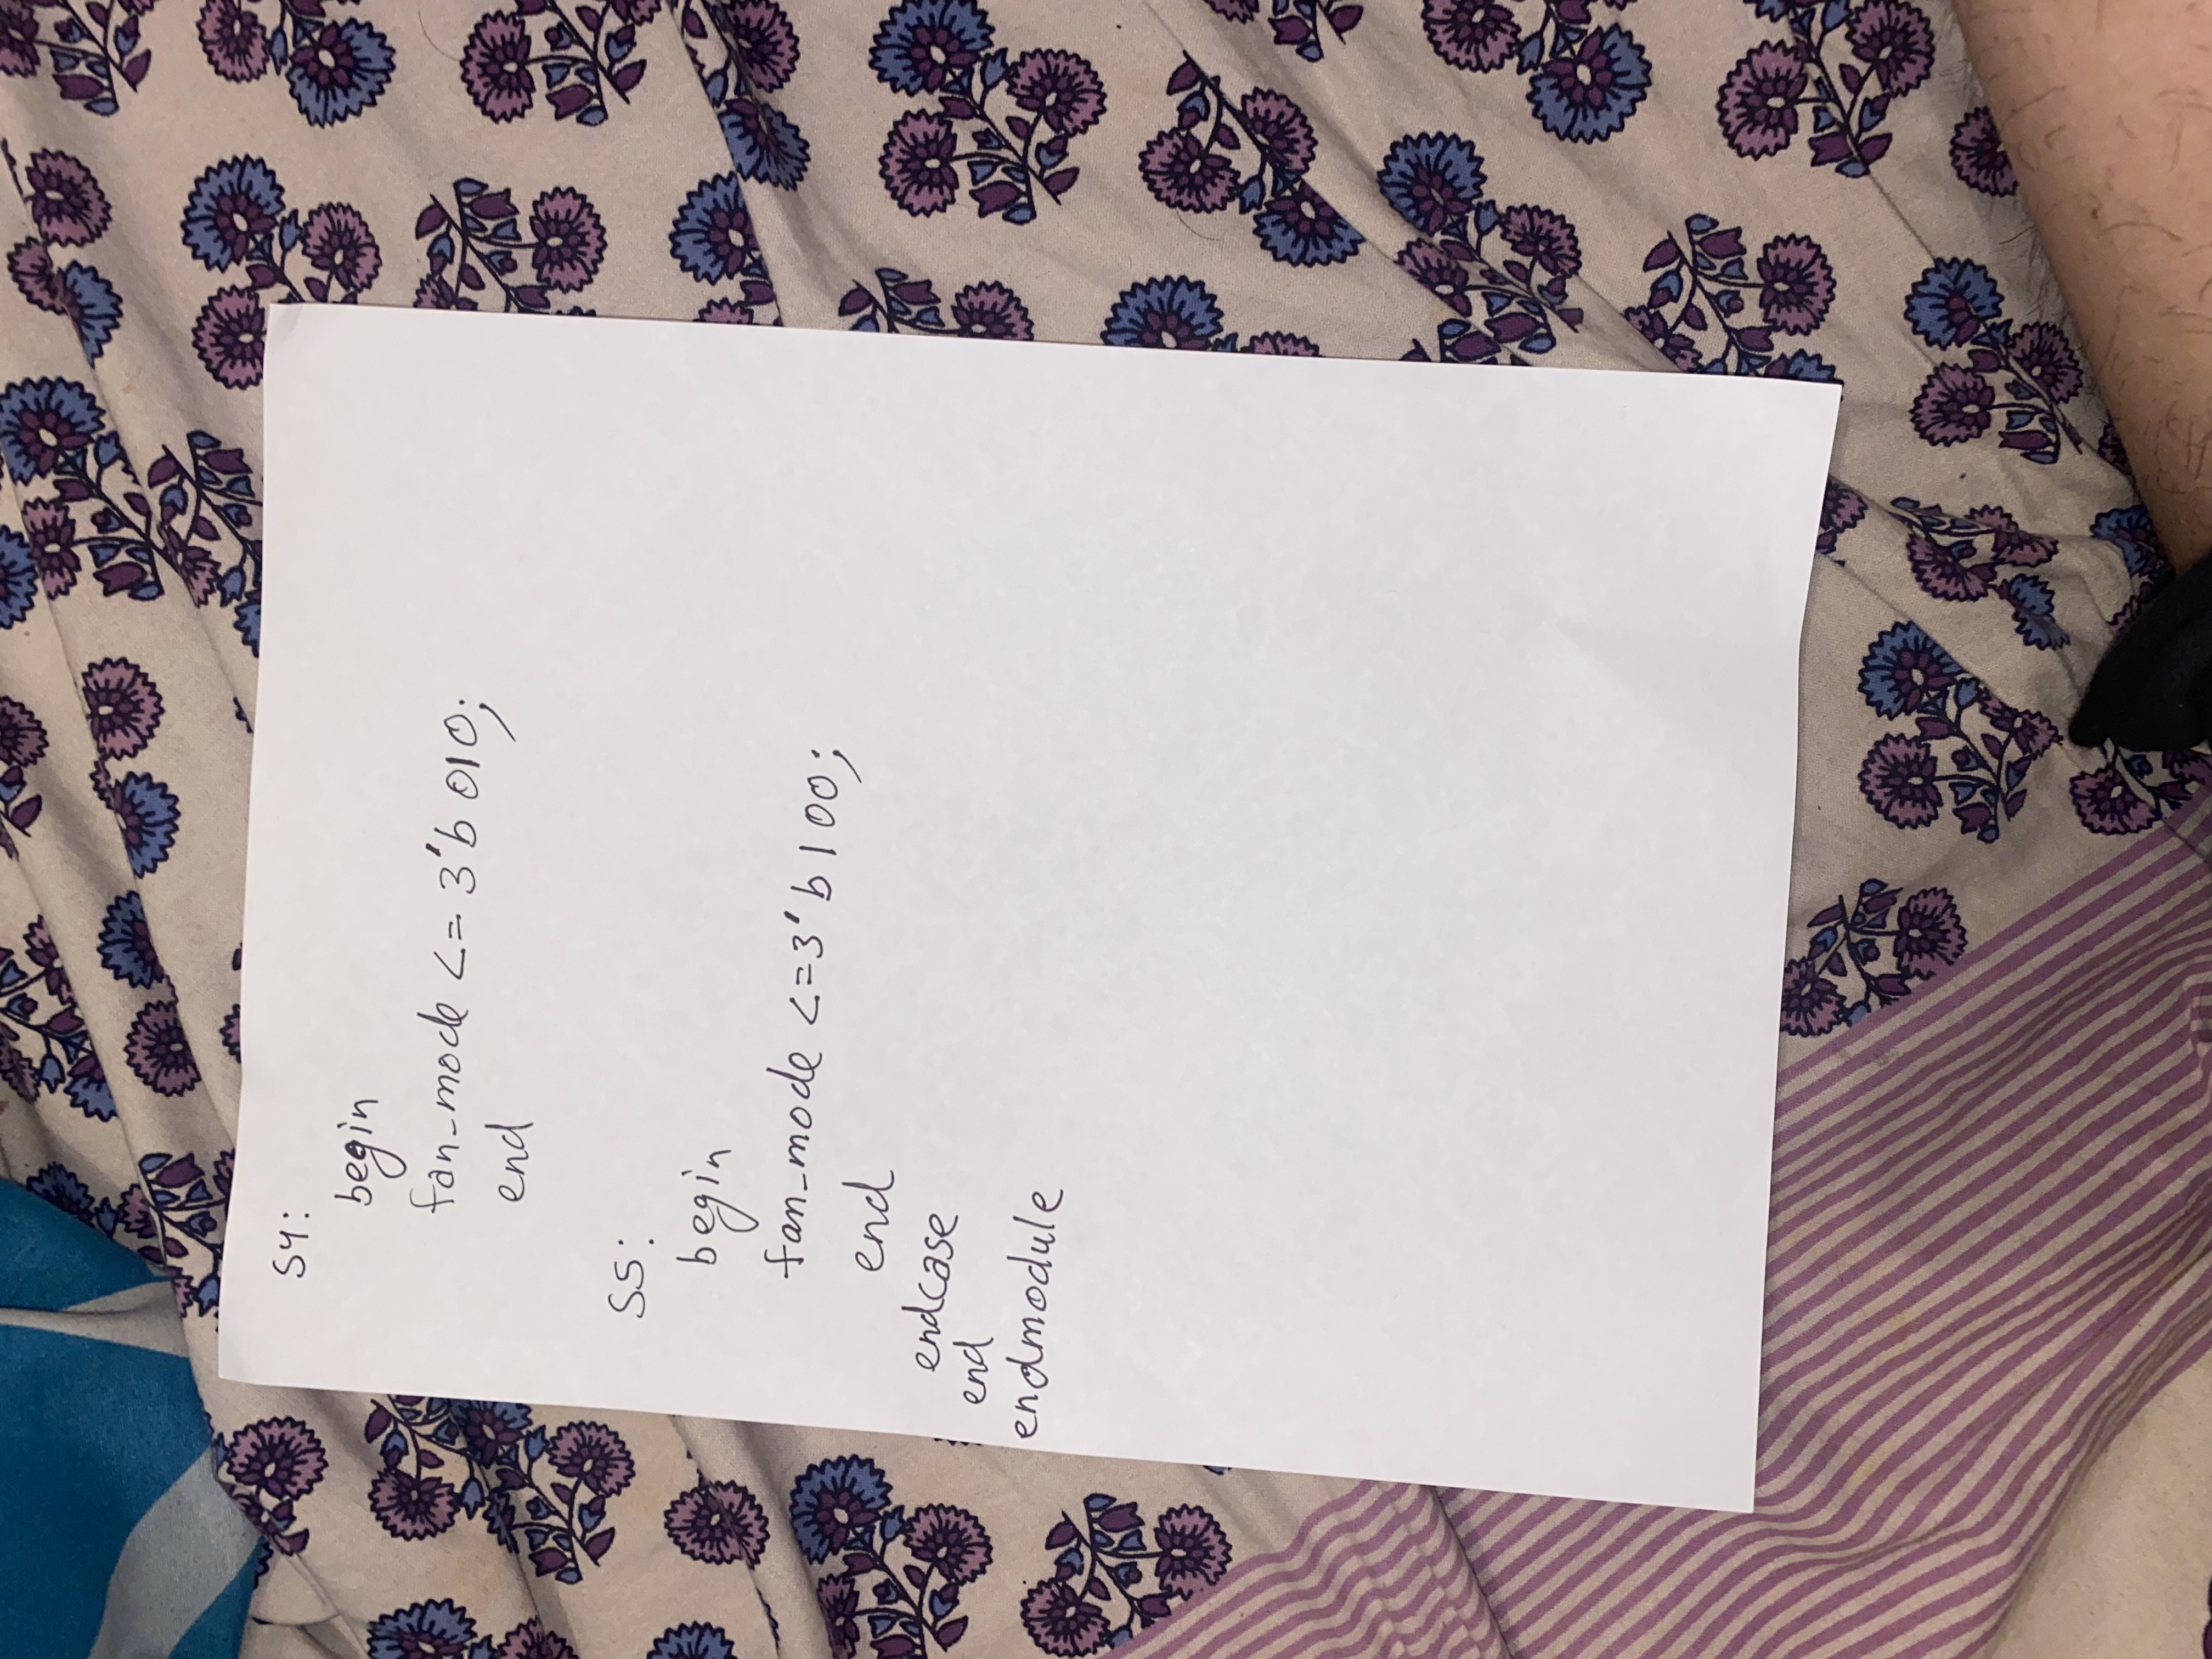 S4:
begin
fan_mode <= 3'b 010;
end
S5:
begin
fan_mode <=3'b 100;
end
endcase
end
endmodule